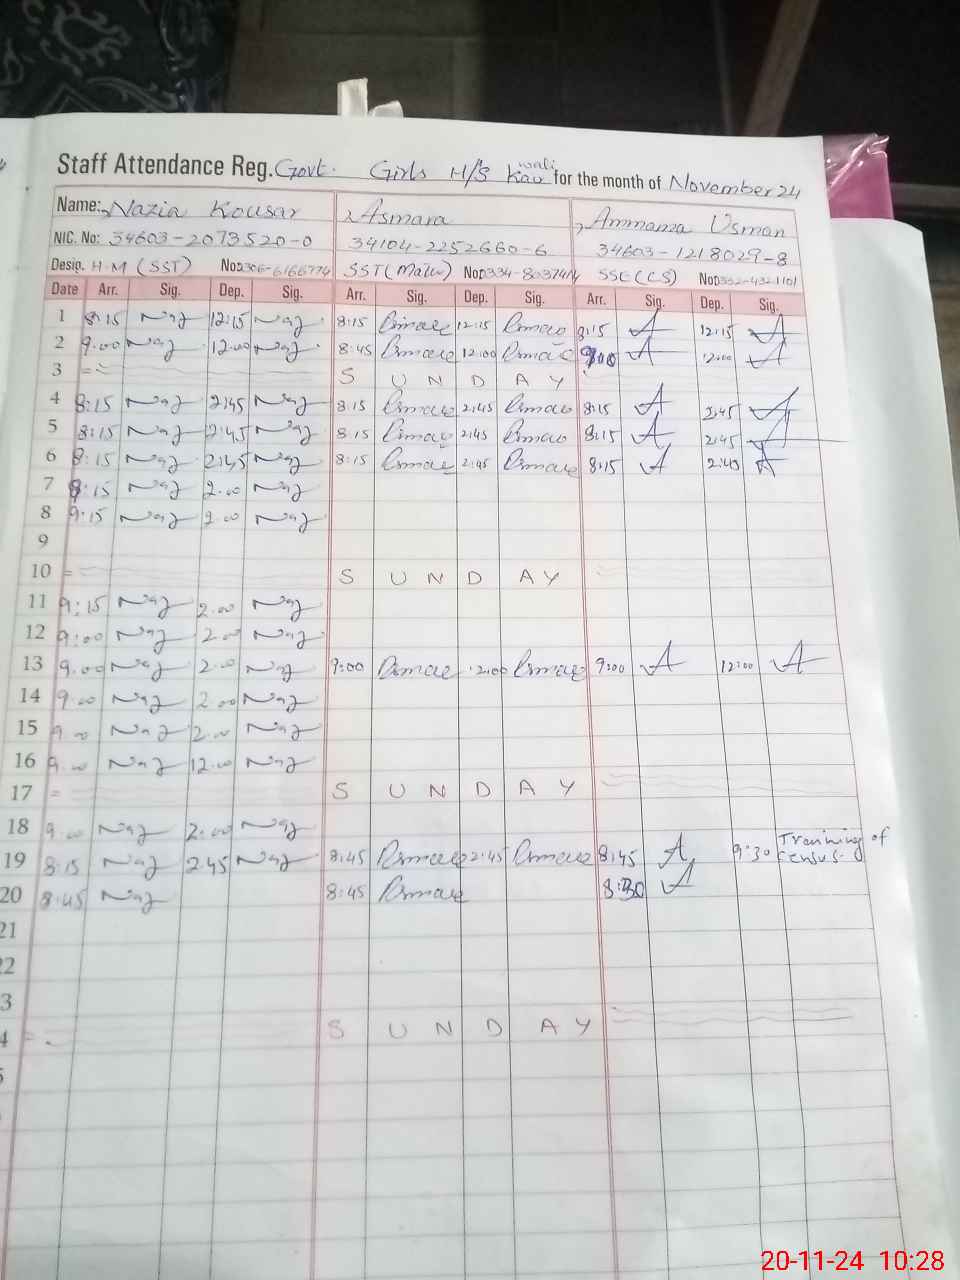 Staff Attendance Reg. Govt. Girls H/S Kau wali for the month of November 24
Name: Nazia Kousar Asmara Ammama Usman
NIC. No: 34603-2073520-0 34104-2252660-6 34603-1218029-8
Desig. H.M (SST) No: 0306-6166774 SST (Math) No: 0334-8037414 SSE (CS) No:
Date Arr. Sig. Dep. Sig. Arr. Sig. Dep. Sig. Arr. Sig. Dep. Sig.
1 8:15 Naz 12:15 Naz 8:15 12:15 8:15 A 12:15 A
2 9:00 Naz 12:00 Naz 8:45 12:00 9:00 A 12:00 A
3 SUNDAY
4 8:15 Naz 2:45 Naz 8:15 2:45 8:15 A 2:45 A
5 8:15 Naz 2:45 Naz 8:15 2:45 8:15 A 2:45 A
6 8:15 Naz 2:45 Naz 8:15 2:45 8:15 A 2:45 A
7 8:15 Naz 2.00 Naz
8 9:15 Naz 2.00 Naz
9
10 SUNDAY
11 9:15 Naz 2.00 Naz
12 9:00 Naz 2.00 Naz
13 9.00 Naz 2.00 Naz 9:00 2:00 9:00 A 12:00 A
14 9.00 Naz 2.00 Naz
15 9.00 Naz 2.00 Naz
16 9.00 Naz 12.00 Naz
17 SUNDAY
18 9.00 Naz 2:00 Naz
19 8:15 Naz 2.45 Naz 8:45 2:45 8:45 A 9:30 Training of census.
20 8:45 Naz 8:45 8:30 A
21
22
3
4 SUNDAY
5
20-11-24 10:28